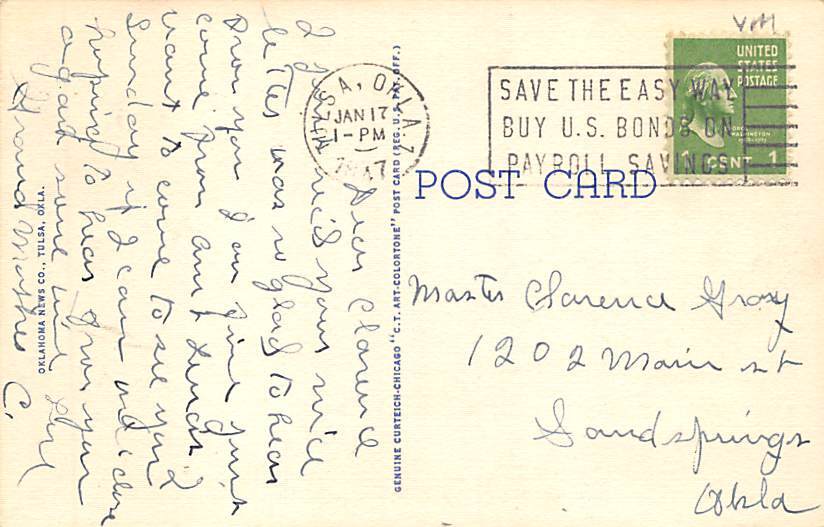 Dear Clarence
I just rec'd your nice
letter was so glad to hear
from you I am fine just
come from aunt Lenas
want to come to see you
Sunday if I can will close
hoping to hear from you
again some time love
Grand Mother C.
OKLAHOMA NEWS CO., TULSA, OKLA.
GENUINE CURTEICH-CHICAGO "C.T. ART-COLORTONE" POST CARD (REG. U.S. PAT. OFF.)
TULSA, OKLA. 7
JAN 17
1 - PM
1947
SAVE THE EASY WAY
BUY U.S. BONDS ON
PAYROLL SAVINGS
UNITED
STATES
POSTAGE
GEORGE
WASHINGTON
1 CENT 1
POST CARD
Master Clarence Gray
1202 Main st
Sandsprings
Okla